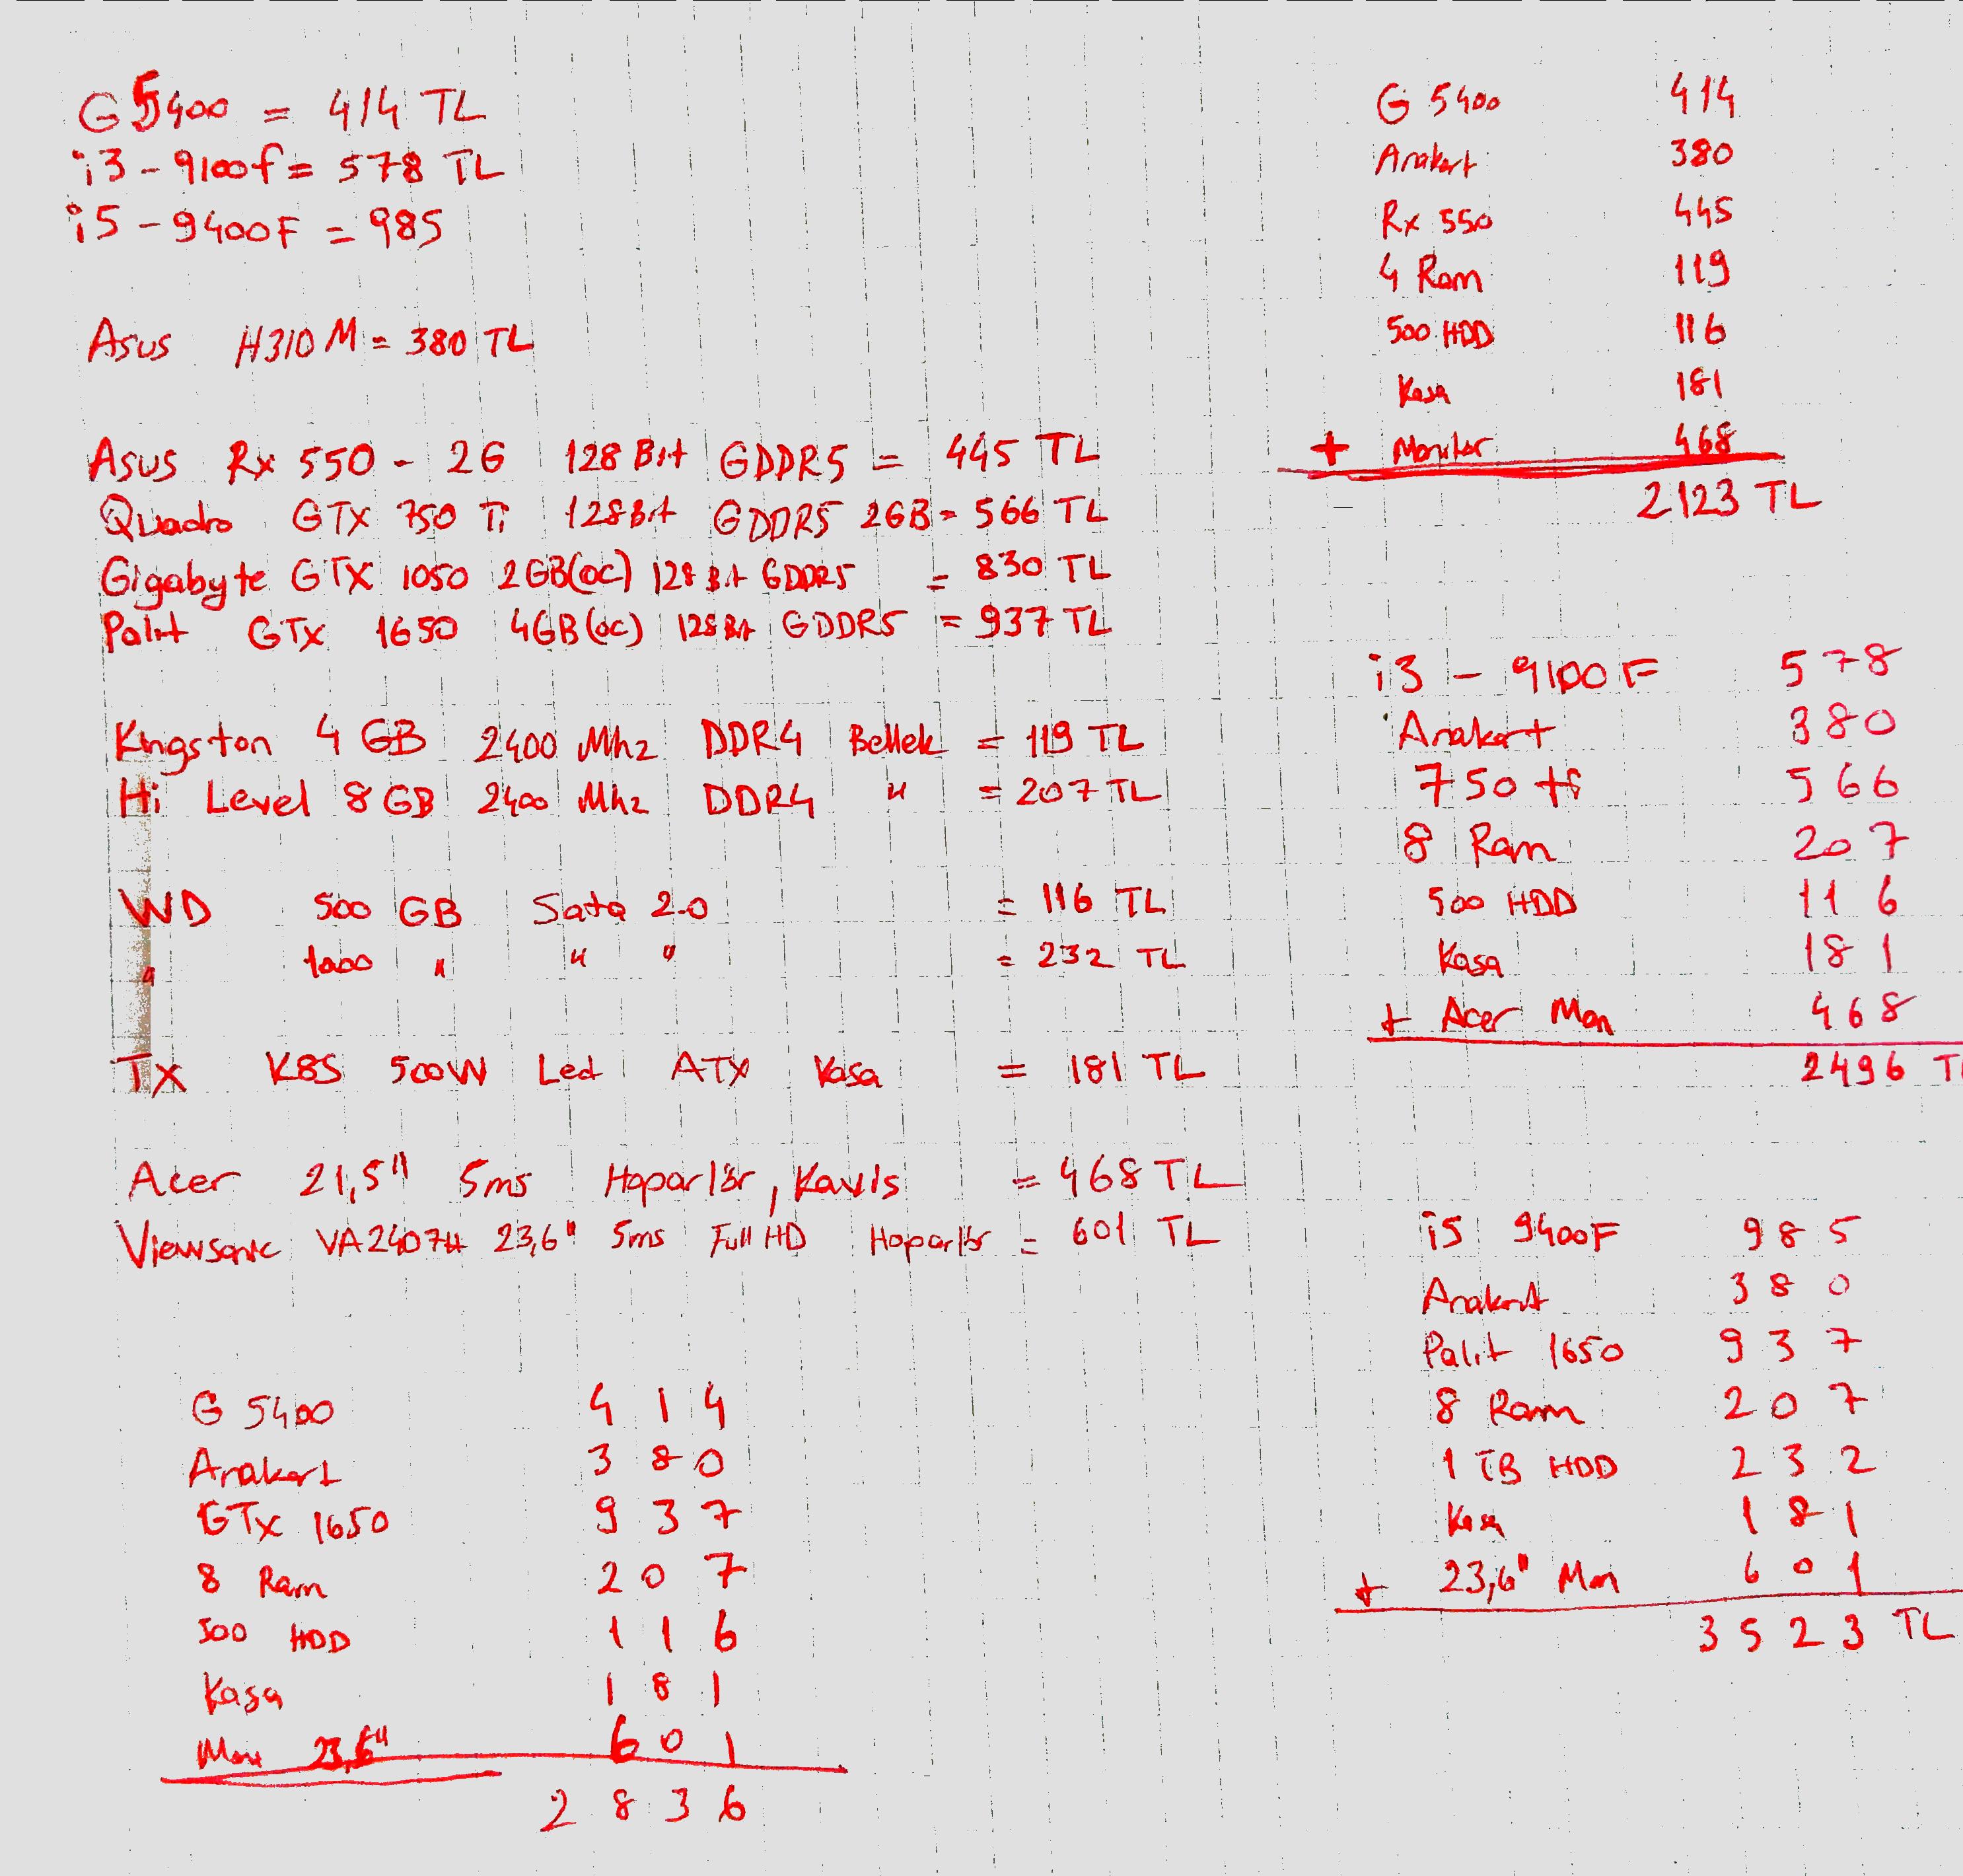 G5400 = 414 TL
i3-9100f = 578 TL
i5-9400F = 985
Asus H310M = 380 TL
Asus Rx 550 - 2G 128 Bit GDDR5 = 445 TL
Quadro GTX 750 Ti 128Bit GDDR5 2GB = 566 TL
Gigabyte GTX 1050 2GB(OC) 128 Bit GDDR5 = 830 TL
Palit GTX 1650 4GB(OC) 128 Bit GDDR5 = 937 TL
Kingston 4 GB 2400 Mhz DDR4 Bellek = 119 TL
Hi Level 8 GB 2400 Mhz DDR4 " = 207 TL
WD 500 GB Sata 2.0 = 116 TL
" 1000 " " " = 232 TL
TX K8S 500W Led ATX Kasa = 181 TL
Acer 21,5" 5ms Hoparlör, Kavis = 468 TL
Viewsonic VA2407H 23,6" 5ms Full HD Hoparlör = 601 TL
G 5400 414
Anakart 380
GTX 1650 937
8 Ram 207
500 HDD 116
Kasa 181
Mon 23,6" 601
2836
G 5400 414
Anakart 380
Rx 550 445
4 Ram 119
500 HDD 116
Kasa 181
+ Monitor 468
2123 TL
i3 - 9100F 578
Anakart 380
750 ti 566
8 Ram 207
500 HDD 116
Kasa 181
+ Acer Mon 468
2496 TL
i5 9400F 985
Anakart 380
Palit 1650 937
8 Ram 207
1 TB HDD 232
Kasa 181
+ 23,6" Mon 601
3523 TL